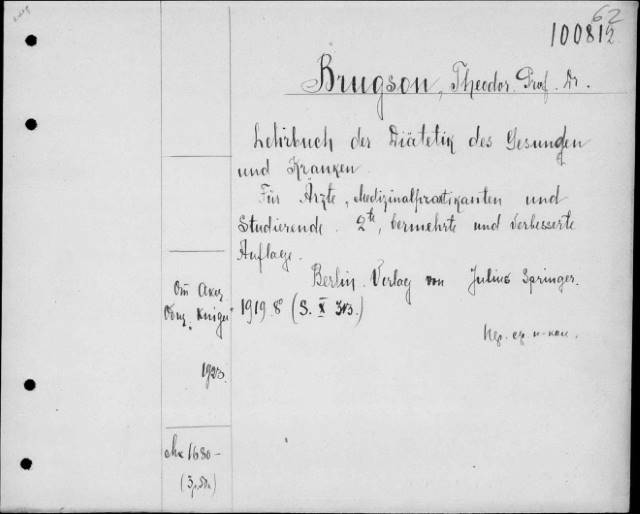 62
100812
Brugson, Theodor. Prof. Dr.
Lehrbuch der Diätetik des Gesunden
und Kranken
Für Ärzte, Medizinalpraktikanten und
Studierende. 2te, vermehrte und verbesserte
Auflage.
Berlin. Verlag von Julius Springer.
1919. 8° (S. X 313.)
1923.
Mk 1680-